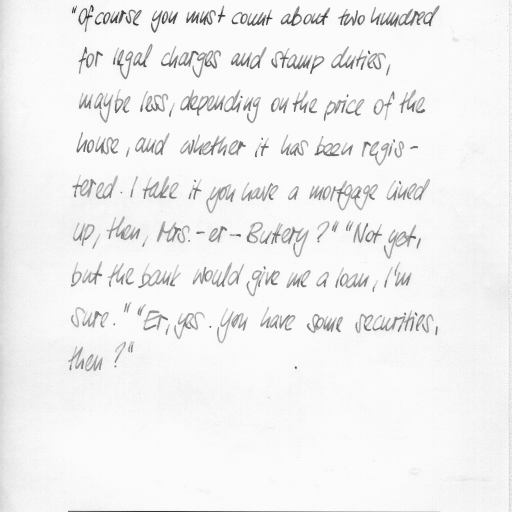 "Of course you must count about two hundred
for legal charges and stamp duties,
maybe less, depending on the price of the
house, and whether it has been regis-
tered. I take it you have a mortgage lined
up, then, Mrs. - er - Buttery?" "Not yet,
but the bank would give me a loan, I'm
sure." "Er, yes. You have some securities,
then?"